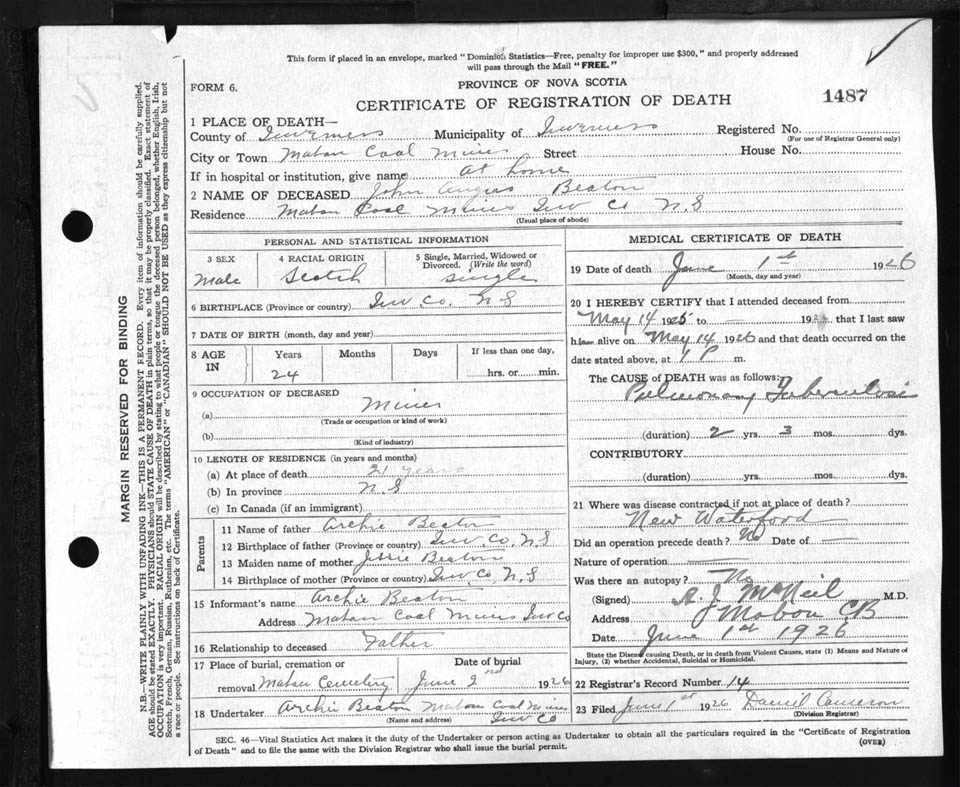 This form if placed in an envelope, marked "Dominion Statistics—Free, penalty for improper use $300," and properly addressed
will pass through the Mail "FREE."
FORM 6.
PROVINCE OF NOVA SCOTIA
CERTIFICATE OF REGISTRATION OF DEATH
1487
1 PLACE OF DEATH—
County of Inverness Municipality of Inverness Registered No.
(For use of Registrar General only)
City or Town Mabou Coal Mines Street House No.
If in hospital or institution, give name at home
2 NAME OF DECEASED John Angus Beaton
Residence Mabou Coal Mines Inv Co N.S
(Usual place of abode)
PERSONAL AND STATISTICAL INFORMATION
3 SEX 4 RACIAL ORIGIN 5 Single, Married, Widowed or
Divorced. (Write the word)
Male Scotch single
6 BIRTHPLACE (Province or country) Inv Co. N S
7 DATE OF BIRTH (month, day and year)
8 AGE IN Years Months Days If less than one day,
24 hrs. or min.
9 OCCUPATION OF DECEASED
(a) Miner
(Trade or occupation or kind of work)
(b)
(Kind of industry)
10 LENGTH OF RESIDENCE (in years and months)
(a) At place of death 21 years
(b) In province N.S
(c) In Canada (if an immigrant)
Parents
11 Name of father Archie Beaton
12 Birthplace of father (Province or country) Inv. Co. N.S
13 Maiden name of mother Jessie Beaton
14 Birthplace of mother (Province or country) Inv Co, N.S
15 Informant's name Archie Beaton
Address Mabou Coal Mines Inv Co
16 Relationship to deceased Father
17 Place of burial, cremation or Date of burial
removal Mabou Cemetery June 2nd 1926
18 Undertaker Archie Beaton Mabou Coal Mines
(Name and address) Inv Co
MEDICAL CERTIFICATE OF DEATH
19 Date of death June 1st 1926
(Month, day and year)
20 I HEREBY CERTIFY that I attended deceased from
May 14 1925 to — 192 that I last saw
h alive on May 14 1926 and that death occurred on the
date stated above, at 1 P m.
The CAUSE of DEATH was as follows:
Pulmonary Tuberculosis
(duration) 2 yrs. 3 mos. dys.
CONTRIBUTORY
(duration) yrs. mos. dys.
21 Where was disease contracted if not at place of death?
New Waterford
Did an operation precede death? No Date of —
Nature of operation —
Was there an autopsy? No
(Signed) A. J. McNeil M.D.
Address Mabou C.B
Date June 1st 1926
State the Disease causing Death, or in death from Violent Causes, state (1) Means and Nature of
Injury, (2) whether Accidental, Suicidal or Homicidal.
22 Registrar's Record Number 14
23 Filed June 1st 1926 Daniel Cameron
(Division Registrar)
SEC. 46—Vital Statistics Act makes it the duty of the Undertaker or person acting as Undertaker to obtain all the particulars required in the "Certificate of Registration
of Death" and to file the same with the Division Registrar who shall issue the burial permit.
(OVER)
MARGIN RESERVED FOR BINDING
N.B.—WRITE PLAINLY WITH UNFADING INK—THIS IS A PERMANENT RECORD. Every item of information should be carefully supplied.
AGE should be stated EXACTLY. PHYSICIANS should STATE CAUSE OF DEATH in plain terms, so that it may be properly classified. Exact statement of
OCCUPATION is very important. RACIAL ORIGIN will be described by stating to what people or tongue the deceased person belonged, whether English, Irish,
Scotch, French, German, Russian, Ruthenian, etc. The terms "AMERICAN" or "CANADIAN" SHOULD NOT BE USED as they express citizenship but not
a race or people. See instructions on back of Certificate.